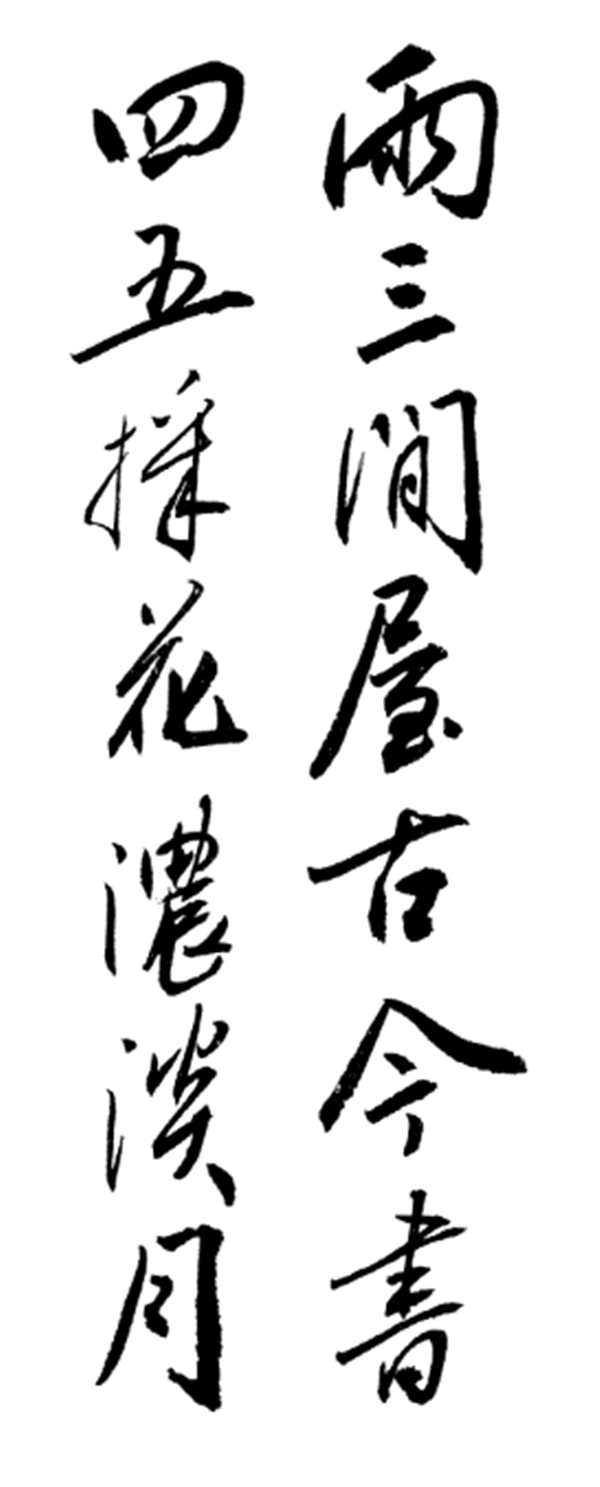 兩三間屋古今書
四五採花濃淡月